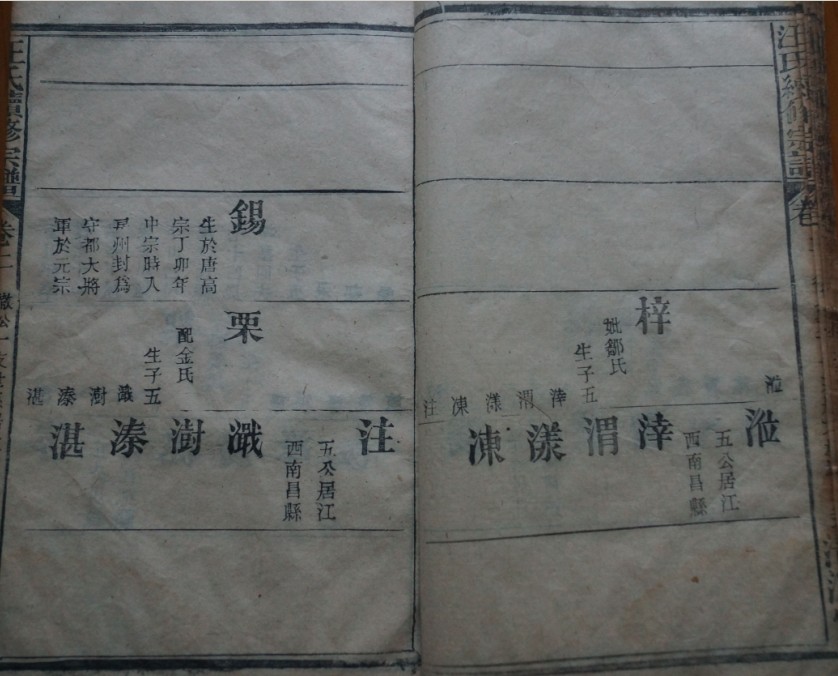 汪氏續修宗譜
卷
泣
泣
五公居江
西南昌縣
梓
妣鄒氏
生子五
涬
渭
漾
涷
注
涬
渭
漾
涷
注
五公居江
西南昌縣
錫
生於唐高
宗丁卯年
中宗時入
州封為
守都大將
軍於元宗
栗
配金氏
生子五
濈
澍
溱
湛
濈
澍
溱
湛
汪氏續修宗譜
卷二